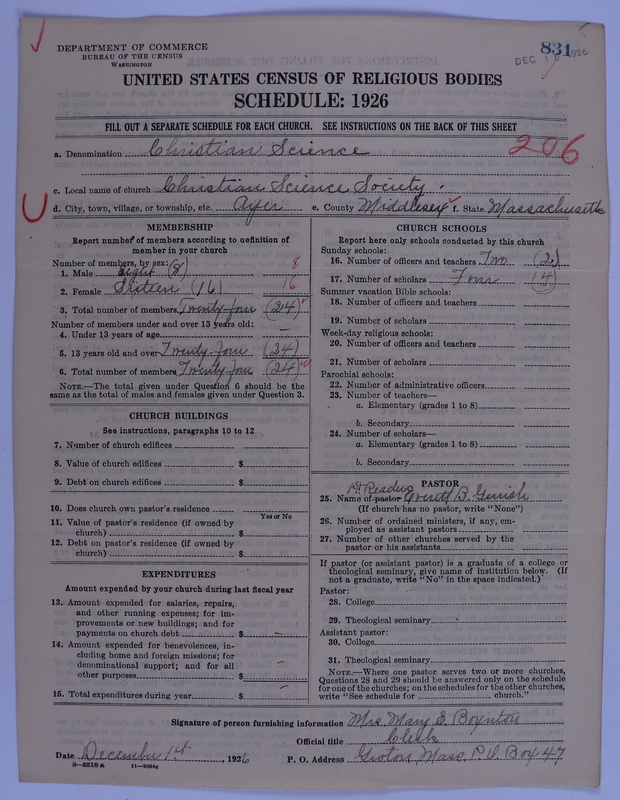 DEPARTMENT OF COMMERCE
BUREAU OF THE CENSUS
WASHINGTON
831
DEC 1926
UNITED STATES CENSUS OF RELIGIOUS BODIES
SCHEDULE: 1926
FILL OUT A SEPARATE SCHEDULE FOR EACH CHURCH. SEE INSTRUCTIONS ON THE BACK OF THIS SHEET
206
a. Denomination Christian Science
c. Local name of church Christian Science Society.
d. City, town, village, or township, etc. Ayer e. County Middlesex f. State Massachusetts
MEMBERSHIP
Report number of members according to definition of
member in your church
Number of members, by sex:
1. Male Eight (8) 8
2. Female Sixteen (16) 16
3. Total number of members Twenty four (24)
Number of members under and over 13 years old:
4. Under 13 years of age –
5. 13 years old and over Twenty four (24)
6. Total number of members Twenty four (24)
NOTE.—The total given under Question 6 should be the
same as the total of males and females given under Question 3.
CHURCH BUILDINGS
See instructions, paragraphs 10 to 12
7. Number of church edifices
8. Value of church edifices $
9. Debt on church edifices $
10. Does church own pastor's residence
Yes or No
11. Value of pastor's residence (if owned by
church) $
12. Debt on pastor's residence (if owned by
church) $
EXPENDITURES
Amount expended by your church during last fiscal year
13. Amount expended for salaries, repairs,
and other running expenses; for im-
provements or new buildings; and for
payments on church debt $ –
14. Amount expended for benevolences, in-
cluding home and foreign missions; for
denominational support; and for all
other purposes $ –
15. Total expenditures during year $ –
CHURCH SCHOOLS
Report here only schools conducted by this church
Sunday schools:
16. Number of officers and teachers Two (2)
17. Number of scholars Four (4)
Summer vacation Bible schools:
18. Number of officers and teachers
19. Number of scholars
Week-day religious schools:
20. Number of officers and teachers
21. Number of scholars
Parochial schools:
22. Number of administrative officers
23. Number of teachers—
a. Elementary (grades 1 to 8)
b. Secondary
24. Number of scholars—
a. Elementary (grades 1 to 8)
b. Secondary
PASTOR
1st Reader
25. Name of pastor Everett B. Gerrish
(If church has no pastor, write "None")
26. Number of ordained ministers, if any, em-
ployed as assistant pastors
27. Number of other churches served by the
pastor or his assistants
If pastor (or assistant pastor) is a graduate of a college or
theological seminary, give name of institution below. (If
not a graduate, write "No" in the space indicated.)
Pastor:
28. College
29. Theological seminary
Assistant pastor:
30. College
31. Theological seminary
NOTE.—Where one pastor serves two or more churches,
Questions 28 and 29 should be answered only on the schedule
for one of the churches; on the schedules for the other churches,
write "See schedule for church."
Signature of person furnishing information Mrs. Mary E. Boynton
Official title Clerk
Date December 1st, 1926 P. O. Address Groton Mass, P.O. Box 47
8—5518 a